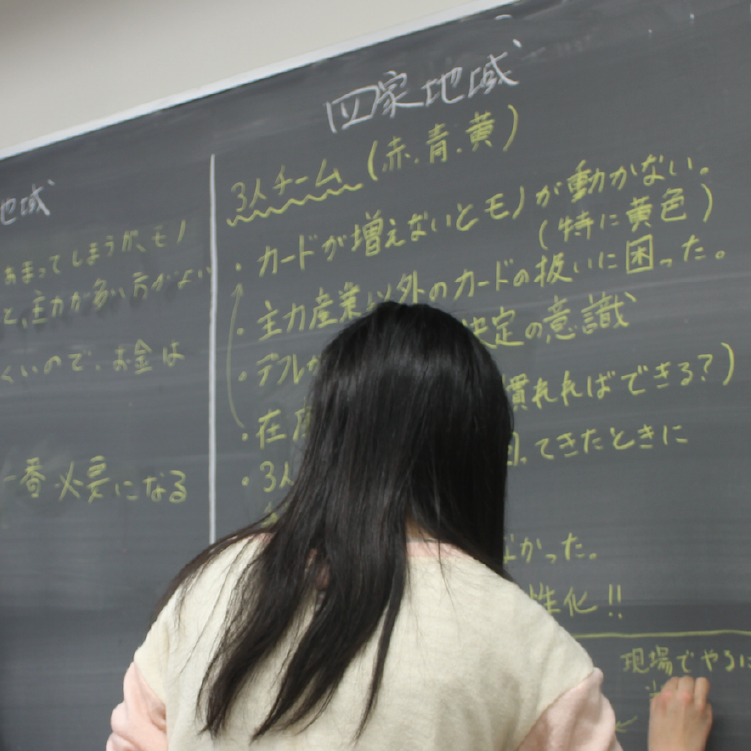 地域
あまってしまうが、モノ
と、主力が多い方がよい
くいので、お金は
一番必要になる
四家地域
3人チーム (赤.青.黄)
・カードが増えないとモノが動かない。
(特に黄色)
・主力産業以外のカードの扱いに困った。
・デフレ 決定の意識
・在 慣れればできる?)
・3人 てきたときに
なかった。
性化!!
現場でやるに